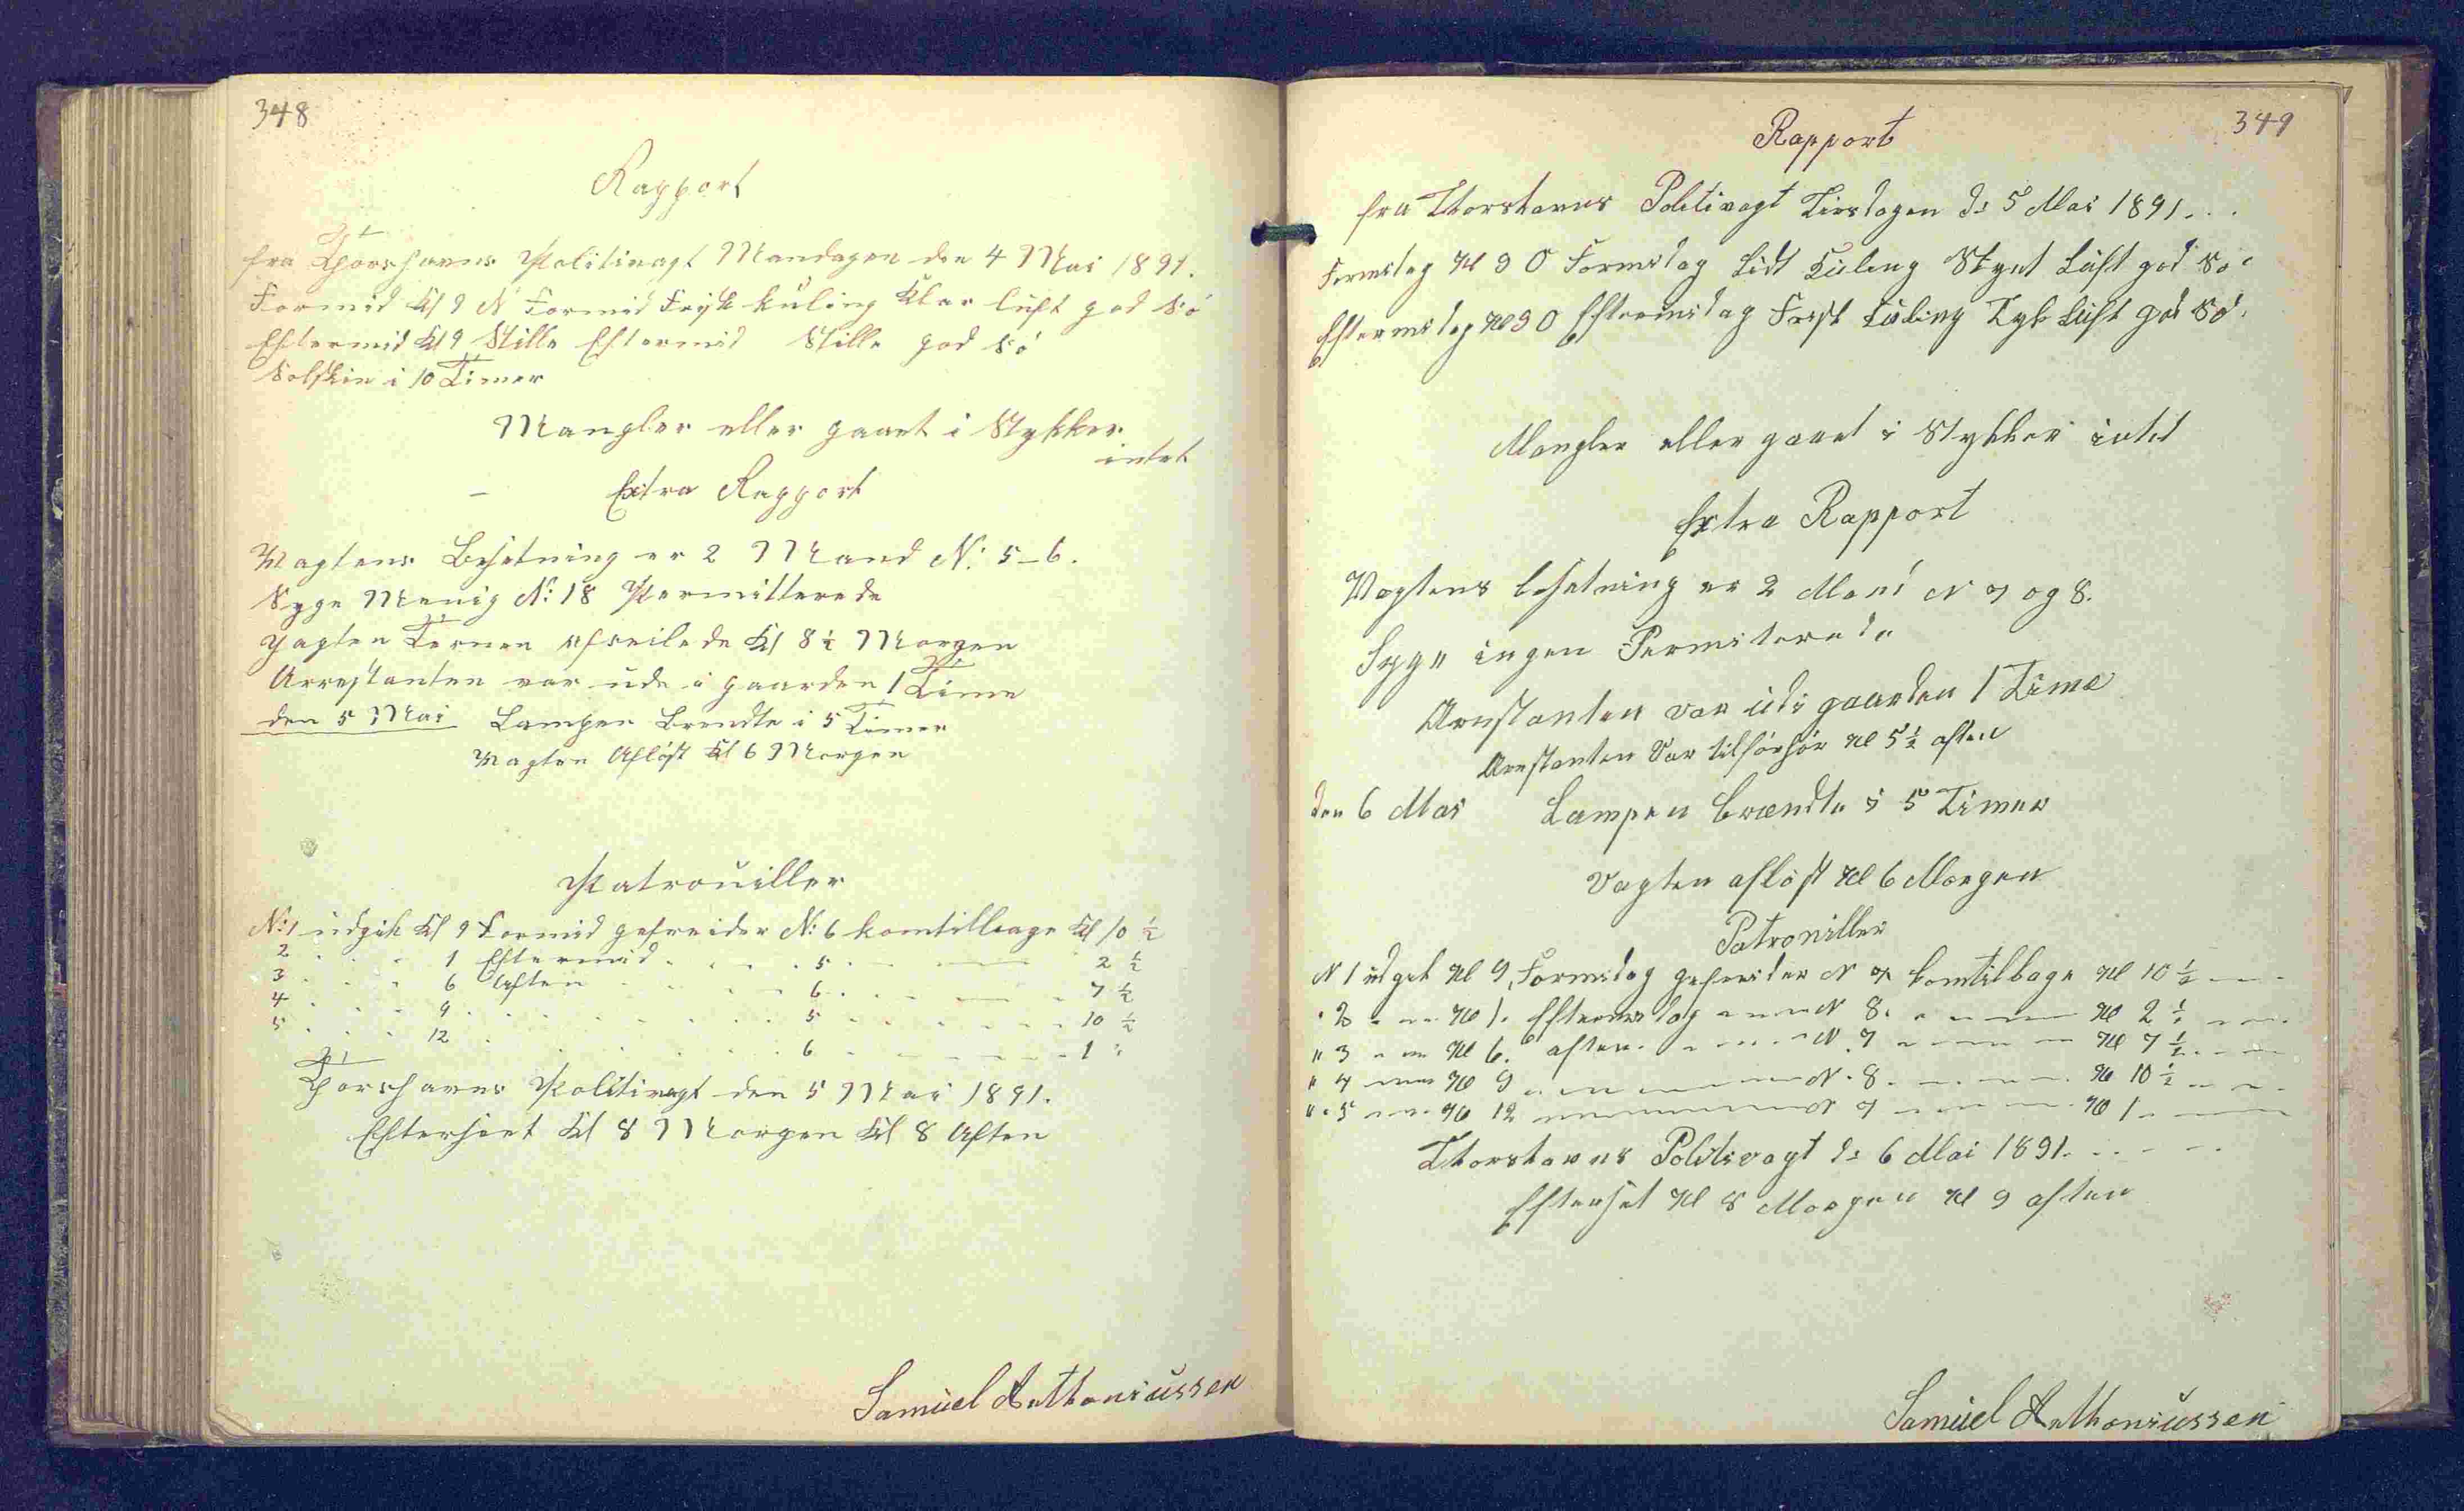 348
Rapport
fra Thorshavns Politivagt Mandagen den 4 Mai 1891.
Formid Kl 9 N Formid Frisk kuling Klar luft god Sö
Eftermid Kl 9 Stille Eftermid Stille god Sö
Solskin i 10 Timer
Mangler eller gaaet i Stykker
intet
Extra Rapport
Vagtens Besetning er 2 Mand N: 5-6.
Syge Menig N: 18 Permitterede
Jagten Ternen afseilede Kl 8½ Morgen
Arrestanten var ude i gaarden 1 Time
den 5 Mai Lampen Brendte i 5 Timer
Vagten Aflöst Kl 6 Morgen
Patrouiller
N: 1 udgik Kl 9 Formid gefreider N: 6 komtilbage Kl 10 ½
2 " " " 1 Eftermid " " " 5 " " " 2 ½
3 " " " 6 Aften " " " 6 " " " 7 ½
4 " " " 9 " " " 5 " " " 10 ½
5 " " " 12 " " " 6 " " " 1 "
Thorshavns Politivagt den 5 Mai 1891.
Efterseet Kl 8 Morgen Kl 8 Aften
Samuel Anthoniussen
349
Rapport
fra Thorshavns Politivagt Tirsdagen d: 5 Mai 1891. . .
Formidag Kl 9 O Formidag Lidt Kuling Skyet Luft god Sö
Eftermidag Kl 9 O Eftermidag Frisk Kuling Tyk Luft god Sö.
Mangler eller gaaet i Stykker intet
Extra Rapport
Vagtens besetning er 2 Mand N 7 og 8.
Syge ingen Permiterede
Arestanten var udi gaarden 1 Time
Arestanten Var tilforhör Kl 5½ aften
den 6 Mai Lampen brændte i 5 Timer
Vagten aflöst Kl 6 Morgen
Patrouiller
N 1 udgik Kl 9, Formidag gefreider N 7 komtilbage Kl 10 ½ " "
" 2 " " Kl 1. Eftermidag " " N 8. " " " Kl 2 ½ " "
" 3 " " Kl 6. aften " " " N 7 " " " Kl 7 ½ " "
" 4 " " Kl 9 " " " N. 8 " " " Kl 10 ½ " "
" 5 " " Kl 12 " " " N 7 " " " Kl 1 " "
Thorshavns Politivagt d: 6 Mai 1891. . . . .
Efterset Kl 8 Morgen Kl 9 aften
Samuel Anthoniussen